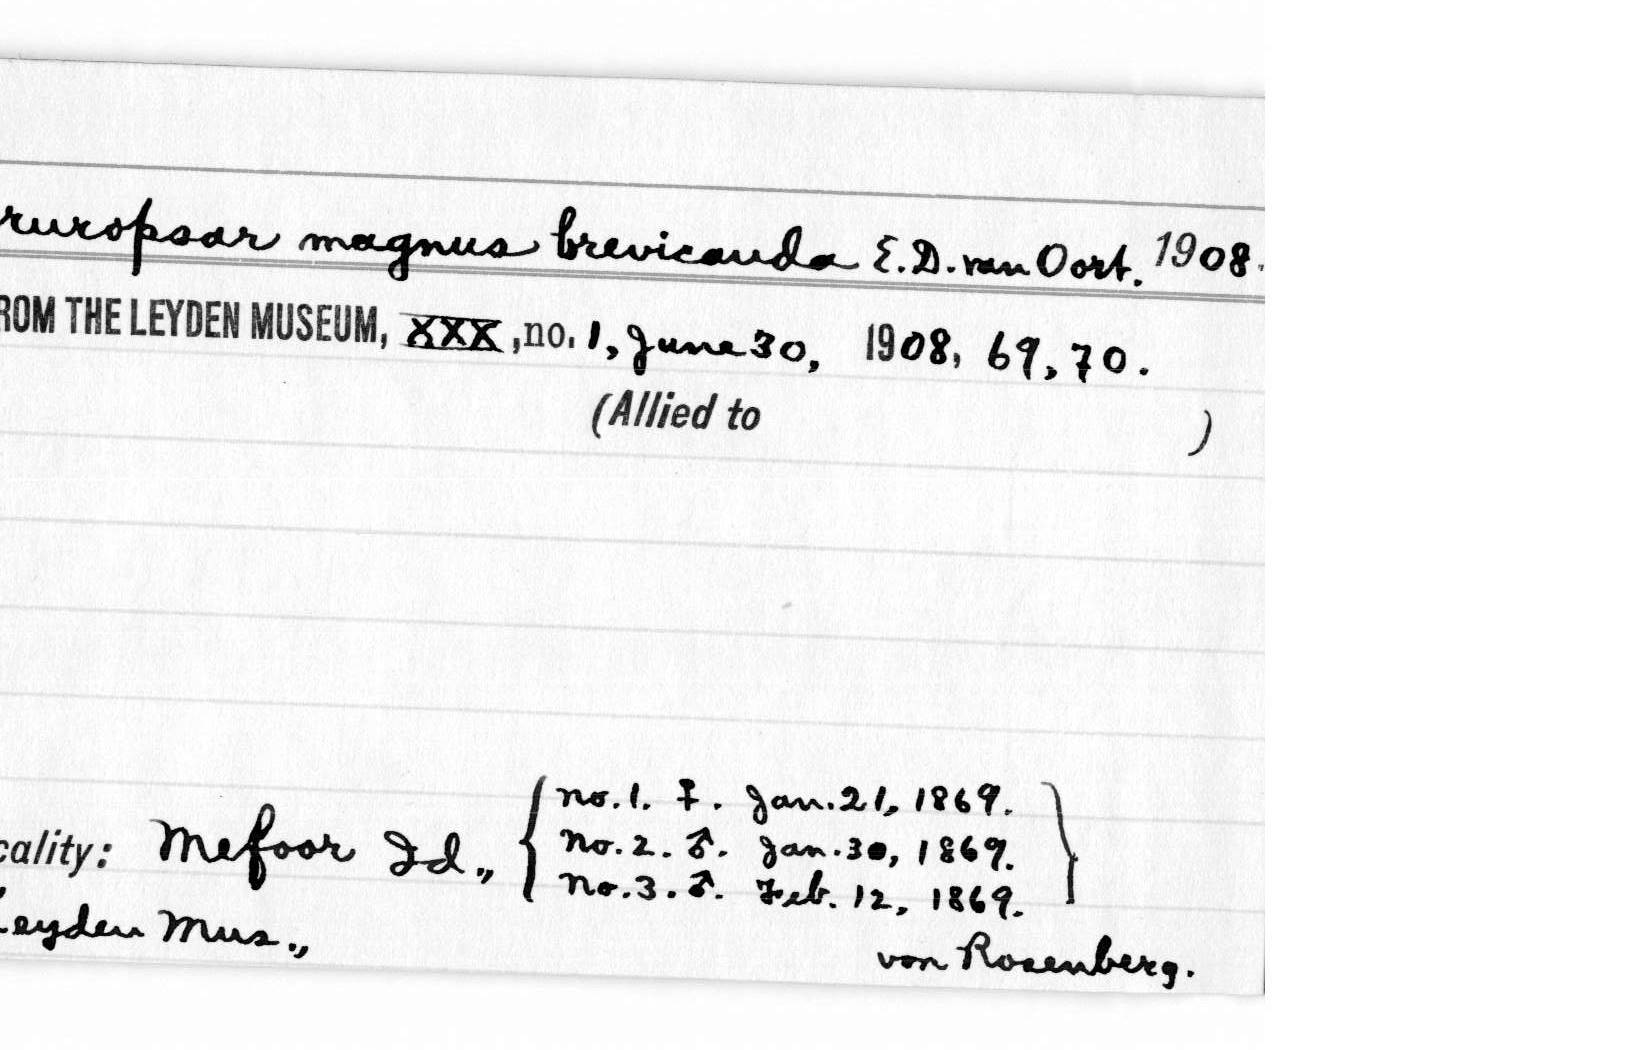 ruropsar magnus brevicauda E.D. van Oort. 1908.
ROM THE LEYDEN MUSEUM, XXX, no. 1, June 30, 1908, 69, 70.
(Allied to )
no. 1. ♀. Jan. 21, 1869.
cality: Mefoor Id., { no. 2. ♂. Jan. 30, 1869. }
no. 3. ♂. Feb. 12, 1869.
Leyden Mus., von Rosenberg.